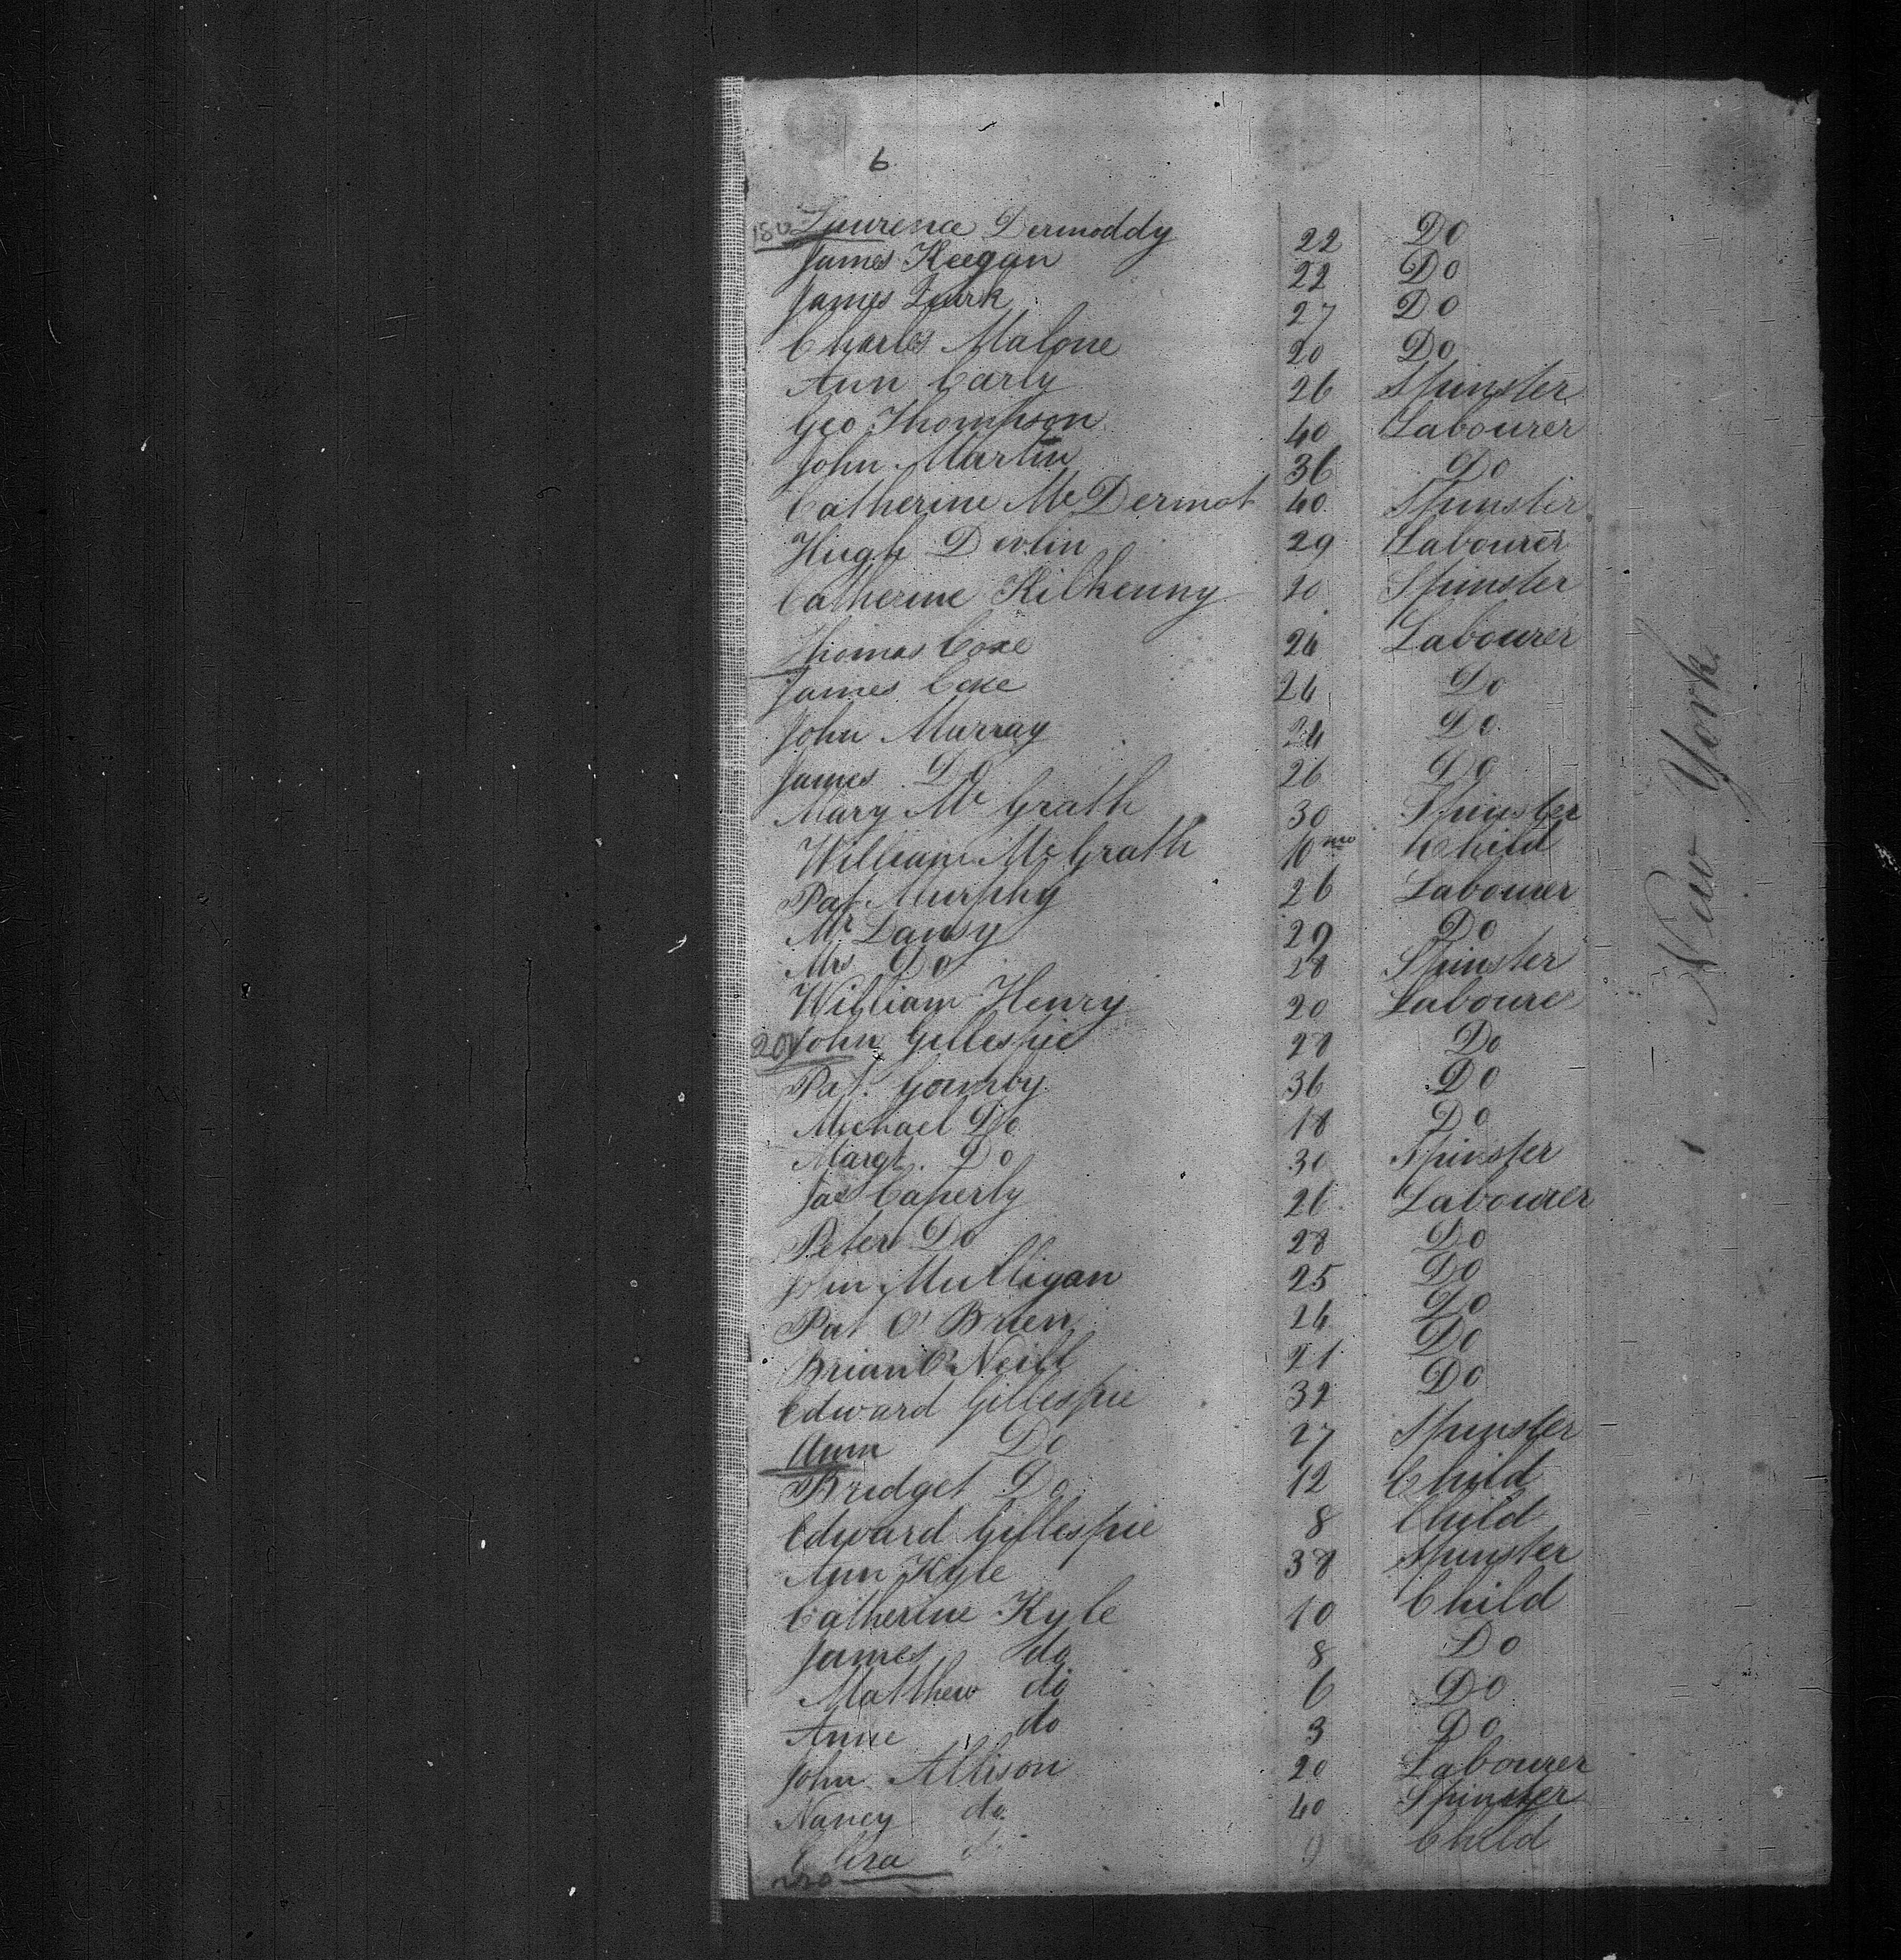 6
180 Laurence Dermoddy 22 Do
James Keegan 22 Do
James Quirk 27 Do
Charles Malone 20 Do
Ann Carly 26 Spinster
Geo Thompson 40 Labourer
John Martin 36 Do
Catherine McDermot 40 Spinster
Hugh Devlin 29 Labourer
Catherine Kilkenny 20 Spinster
Thomas Coxe 24 Labourer
James Coxe 24 Do
John Murray 24 Do
James Do 26 Do
Mary McGrath 30 Spinster
William McGrath 10 mo Child
Pat Murphy 26 Labourer
Mr Dansy 29 Do
Mrs Do 28 Spinster
William Henry 20 Laboure
200 John Gillespie 28 Do
Pat. 36 Do
Michael Do 18 Do
Margt. Do 30 Spinster
Jas Caperly 26 Labourer
Peter Do 28 Do
John Mulligan 25 Do
Pat O'Brien 24 Do
Brian O'Neill 21 Do
Edward Gillespie 32 Do
Ann Do 27 Spinster
Bridget Do 12 Child
Edward Gillespie 8 Child
Ann Kyle 38 Spinster
Catherine Kyle 10 Child
James do 8 Do
Matthew do 6 Do
Anne do 3 Do
John Allison 20 Labourer
Nancy do 40 Spinster
Eliza d 9 Child
220
New York